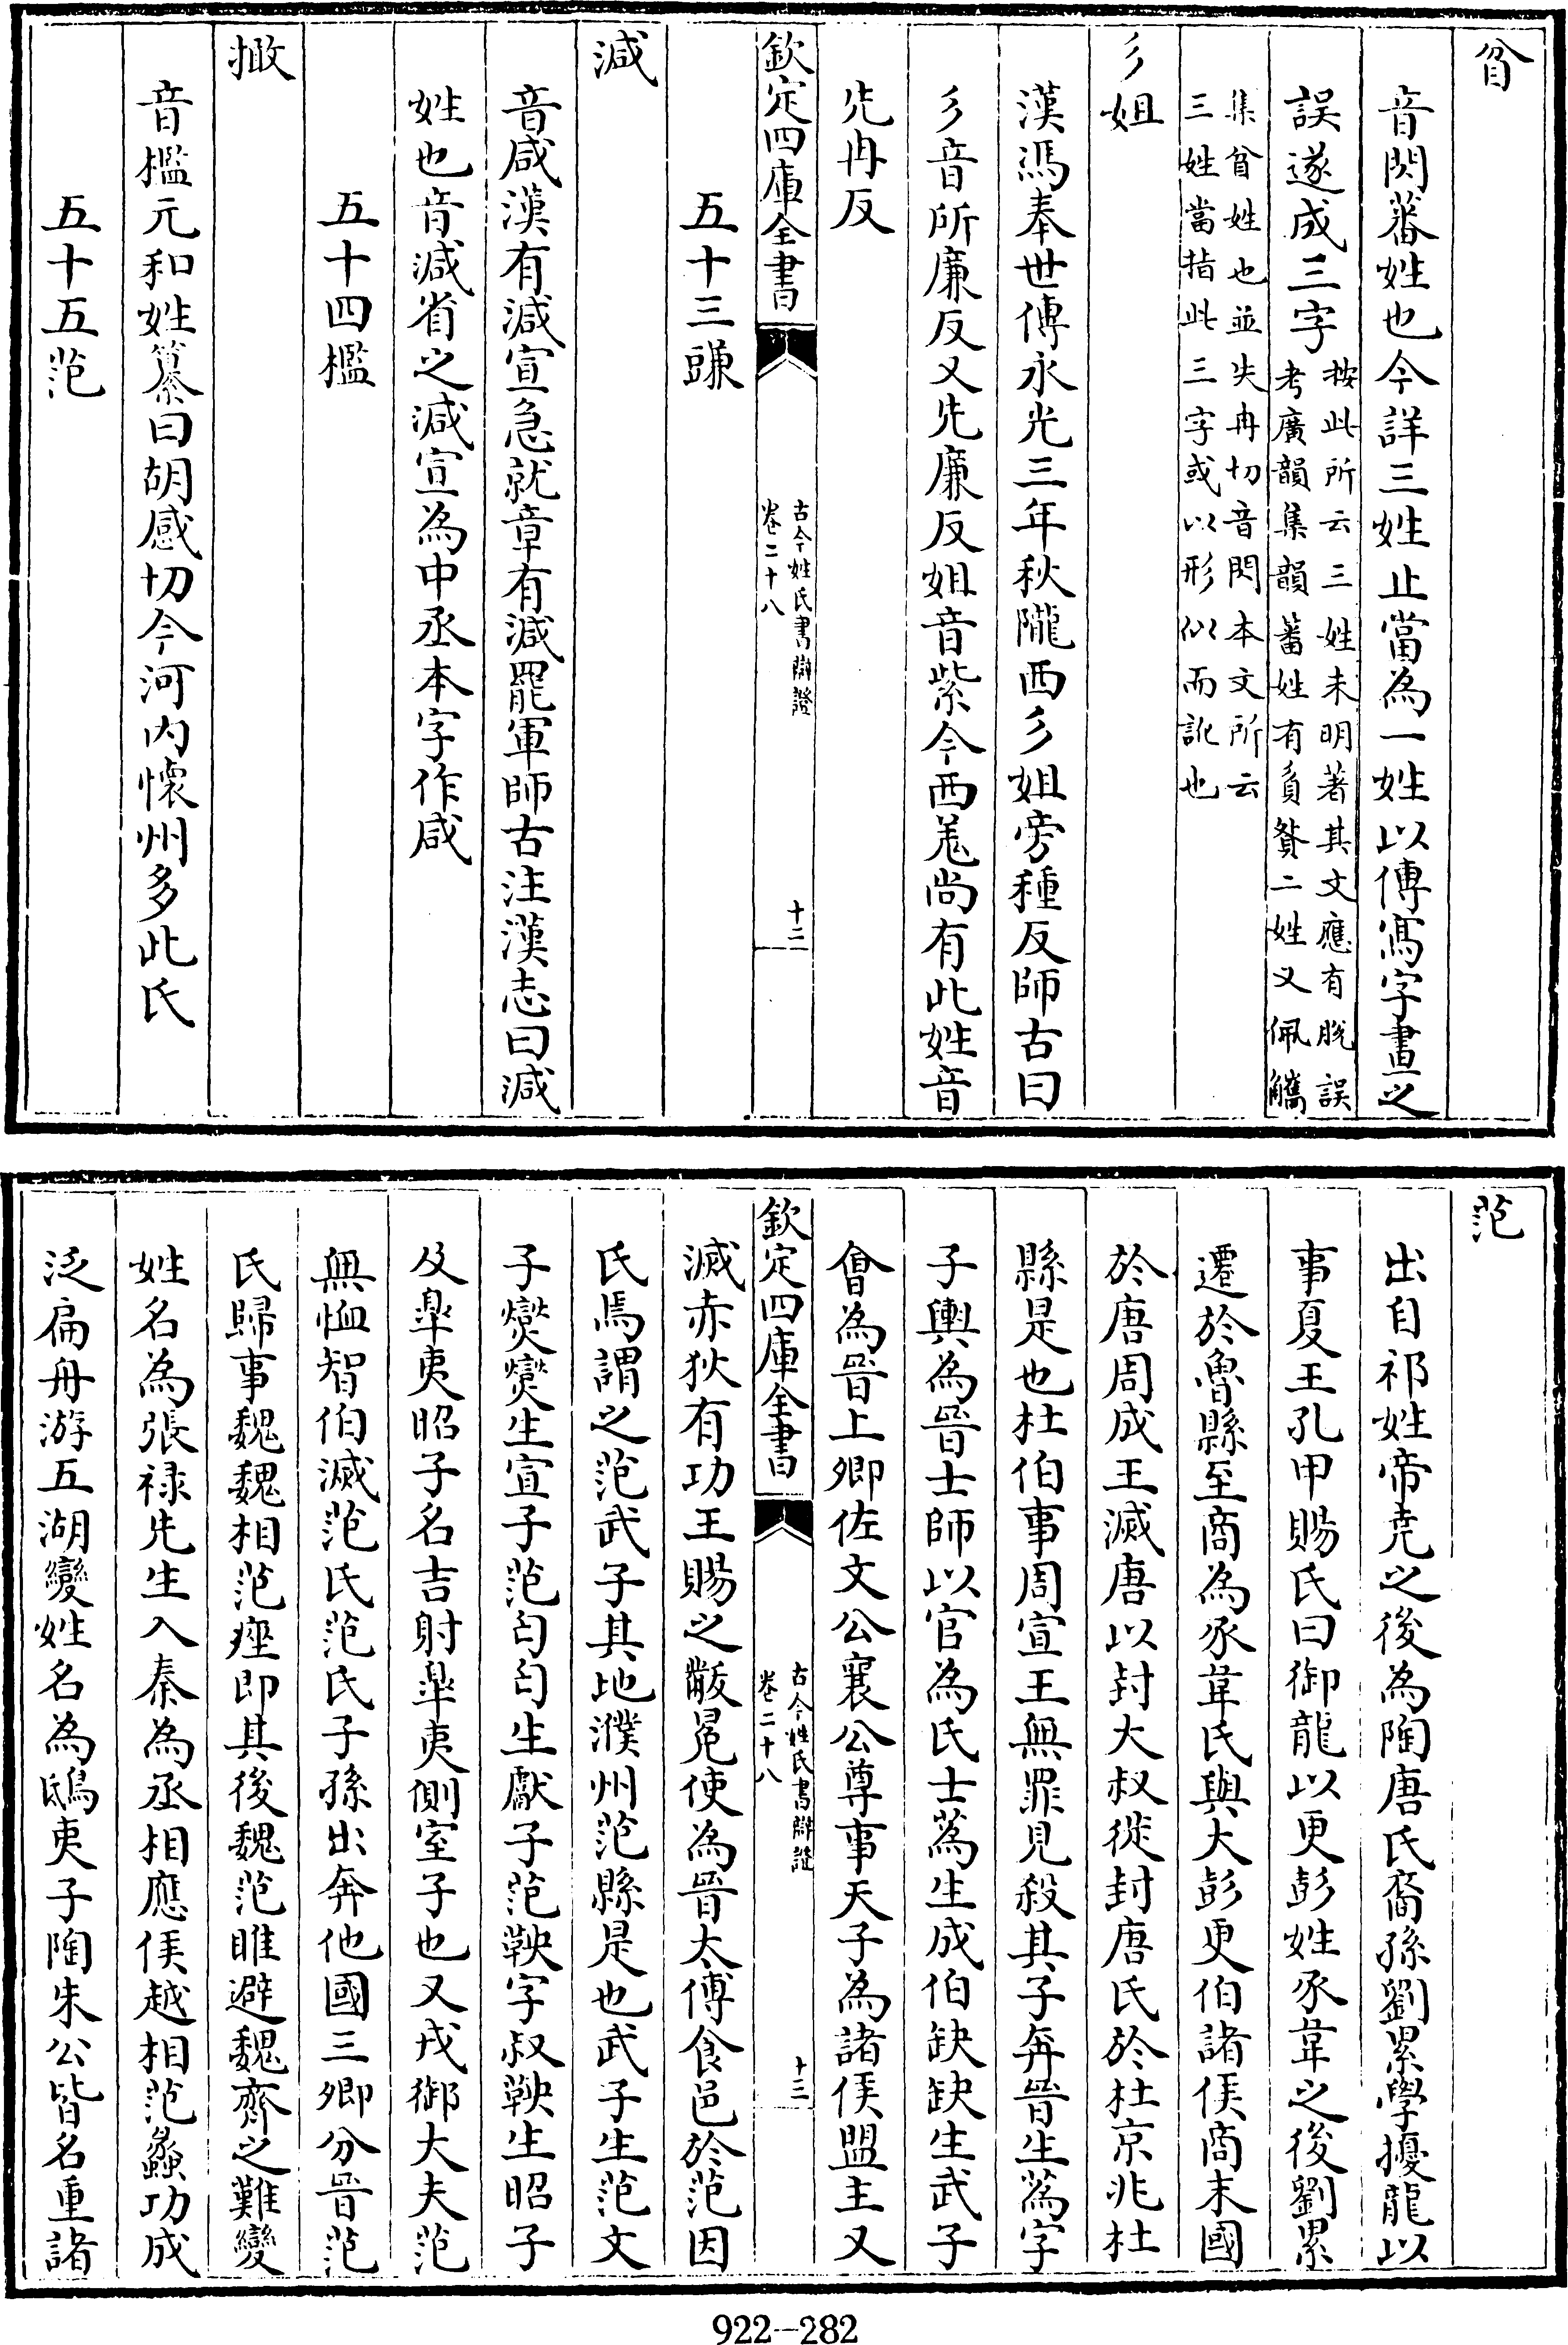 貧
音閃蕃姓也今詳三姓止當為一姓以傳寫字畫之
誤遂成三字
按此所云三姓未明著其文應有脫誤
考廣韻集韻蕃姓有貟贇二姓又佩觿
集貧姓也並失冉切音閃本文所云
三姓當指此三字或以形似而訛也
彡姐
漢馮奉世傳永光三年秋隴西彡姐旁種反師古曰
彡音所廉反又先廉反姐音紫今西羌尚有此姓音
先冉反
欽定四庫全書
古今姓氏書辯證
卷二十八
十二
五十三豏
減
音咸漢有減宣急就章有減罷軍師古注漢志曰減
姓也音減省之減宣為中丞本字作咸
五十四檻
撖
音檻元和姓纂曰胡感切今河內懷州多此氏
五十五范
范
出自祁姓帝堯之後為陶唐氏裔孫劉累學擾龍以
事夏王孔甲賜氏曰御龍以更彭姓豕韋之後劉累
遷於魯縣至商為豕韋氏與大彭更伯諸侯商末國
於唐周成王滅唐以封大叔徙封唐氏於杜京兆杜
縣是也杜伯事周宣王無罪見殺其子奔晉生蒍字
子輿為晉士師以官為氏士蒍生成伯缺缺生武子
會為晉上卿佐文公襄公尊事天子為諸侯盟主又
欽定四庫全書
古今姓氏書辯證
卷二十八
十三
滅赤狄有功王賜之黻冕使為晉太傅食邑於范因
氏焉謂之范武子其地濮州范縣是也武子生范文
子燮燮生宣子范匄匄生獻子范鞅字叔鞅生昭子
及臯夷昭子名吉射臯夷側室子也又戎御大夫范
無恤智伯滅范氏范氏子孫出奔他國三卿分晉范
氏歸事魏魏相范痤即其後魏范睢避魏齊之難變
姓名為張祿先生入秦為丞相應侯越相范蠡功成
泛扁舟游五湖變姓名為鴟夷子陶朱公皆名重諸
922-282